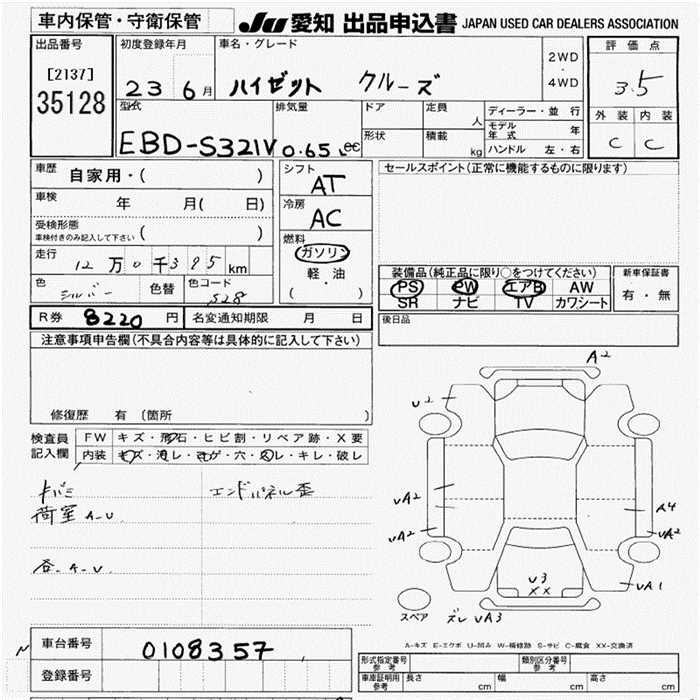 車内保管・守衛保管
JU 愛知 出品申込書 JAPAN USED CAR DEALERS ASSOCIATION
出品番号
[2137]
35128
初度登録年月
23 6月
車名・グレード
ハイゼット クルーズ
2WD
・
4WD
評価点
3.5
外装 内装
C C
型式
EBD-S321V
排気量
0.65 cc
ドア
形状
定員
人
積載
kg
ディーラー・並行
モデル年式 年
ハンドル 左・右
車歴
自家用・( )
車検
年 月( 日)
受検形態
車検付きのみ記入して下さい ( )
走行
12万0千395km
色
シルバー
色替
色コード
S28
シフト
AT
冷房
AC
燃料
ガソリン
軽・油
( )
セールスポイント(正常に機能するものに限ります)
装備品(純正品に限り○をつけてください)
PS PW エアB AW
SR ナビ TV カワシート
新車保証書
有・無
R券 8220 円
名変通知期限 月 日
後日品
注意事項申告欄(不具合内容等は具体的に記入して下さい)
修復歴 有 (箇所 )
検査員
記入欄
FW キズ・飛石・ヒビ割・リペア跡・X要
内装 キズ・汚レ・コゲ・穴・スレ・キレ・破レ
キバミ
荷室 A-U
エンドパネル歪
各-A-U
A2
U2
UA2
UA2
A4
UA2
UA1
U3
XX
スペア
ズレ UA3
A-キズ E-エクボ U-凹み W-補修跡 S-サビ C-腐食 XX-交換済
車台番号
0108357
登録番号
形式指定番号
参考
類別区分番号
参考
車庫証明用
参考
長さ cm
幅 cm
高さ cm